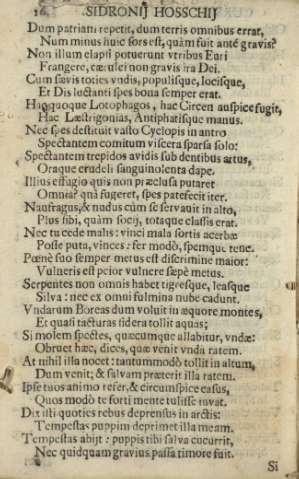 16. SIDRONIJ HOSSCHIJ
Dum patriam repetit, dum terris omnibus errat,
Num minus huic sors est, quàm fuit anté gravis?
Non illum elapsi potuerunt vtribus Euri
Frangere, cæusei non gravis ira Dei.
Cum sævis toties vndis, populisque, locisque,
Et Dis luctanti spes bona semper erat.
Hac quoque Lotophagos, hac Circen auspice fugit,
Hac Læstrigonias, Antiphatisque manus.
Nec spes destituit vasto Cyclopis in antro
Spectantem comitum viscera sparsa solo:
Spectantem trepidos avidis sub dentibus artus,
Oraque crudeli sanguinolenta dape.
Illius effugio quis non præclusa putaret
Omnia? quà fugeret, spes patefecit iter.
Naufragus, & nudus cùm se servauit in alto,
Plus sibi, quàm socij, totaque classis erat.
Nec tu cede malis: vinci mala sortis acerbæ
Posse puta, vinces: fer modò, spemque tene.
Pœnè suo semper metus est discrimine maior:
Vulneris est peior vulnere sæpè metus.
Serpentes non omnis habet tigresque, leasque
Silva: nec ex omni fulmina nube cadunt.
Vndarum Boreas dum voluit in æquore montes,
Et quasi tacturas sidera tollit aquas;
Si molem spectes, quæcumque allabitur, vndæ:
Obruet hæc, dices, quæ venit vnda ratem.
At nihil illa nocet: tantummodò tollit in altum,
Dum venit; & salvam præterit illa ratem.
Ipse tuos animo refer, & circumspice casus,
Quos modò te forti mente tulisse iuvat.
Dixisti quoties rebus deprensus in arctis:
Tempestas puppim deprimet illa meam.
Tempestas abijt: puppis tibi salva cucurrit,
Nec quidquam gravius passa timore fuit.
Si